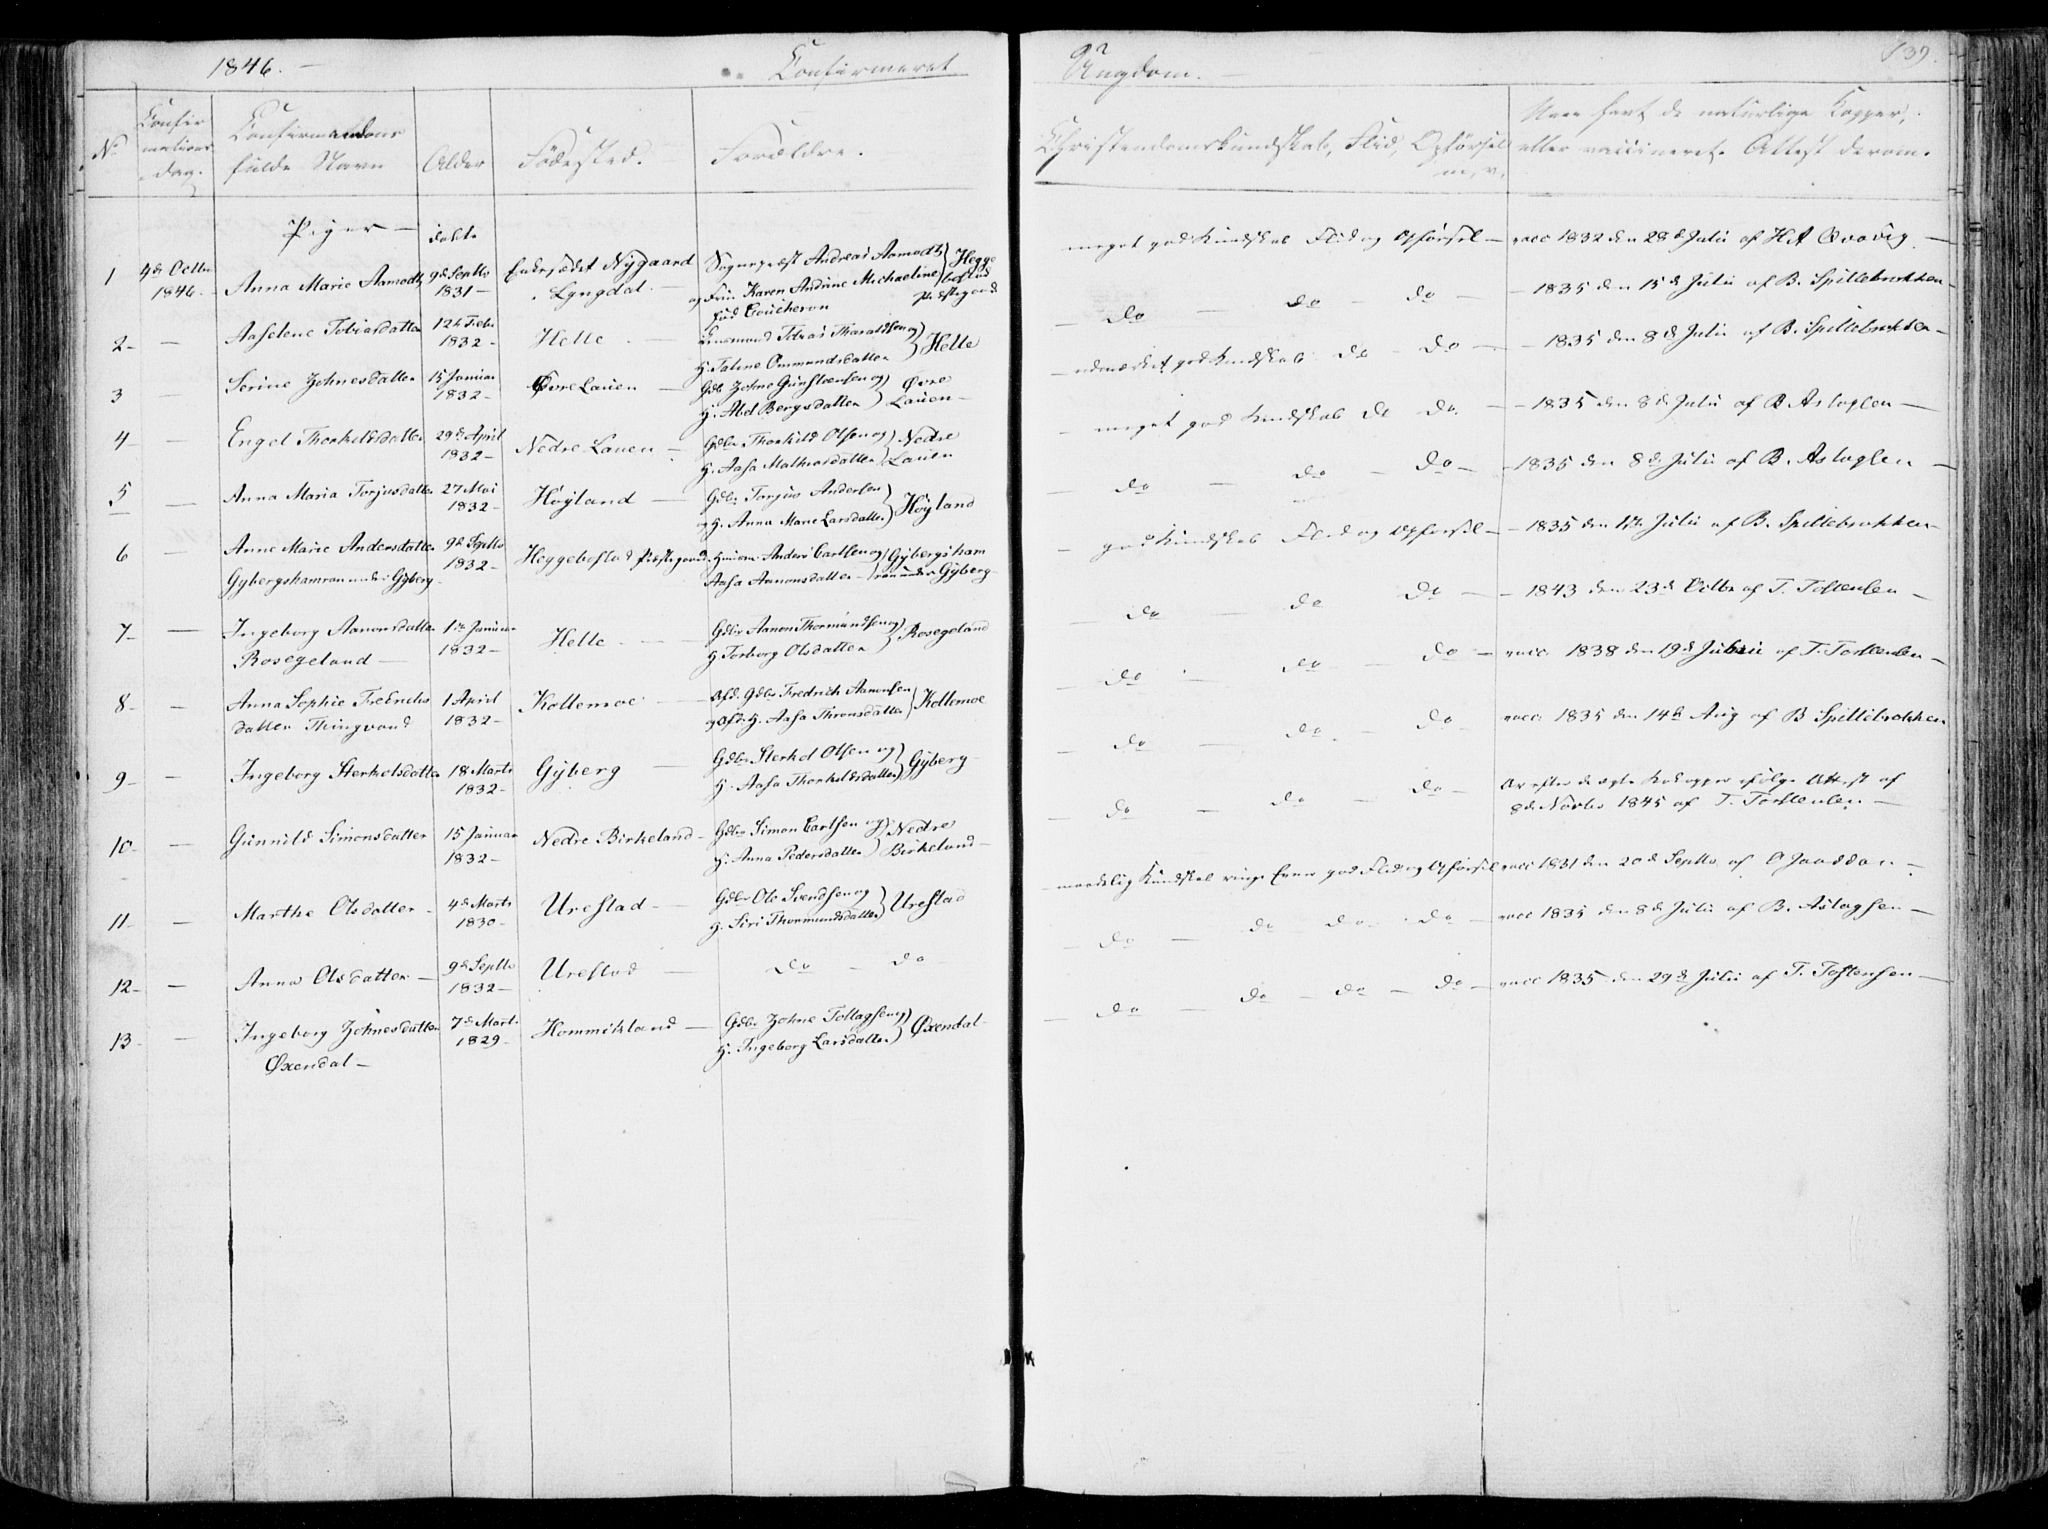 1846. — Confirmeret
Ungdom. — 139.
No
Confirmations dag.
Confirmandens fulde Navn
Alder
Fødested.
Forældre.
Christendomskundskab, Flid, Opførsel m, v,
Have havt de naturlige Kopper, eller vaccineret. Attest derom.
Piger —
døbte
1 4de Octbr 1846. Anna Marie Aamodt 9de Septbr 1831 — Enkesædet Nygaard Lyngdal. — Sognepræst Andreas Aamodt og Frue Karen Andrine Michaeline fød Coucheron } Hegge bostad Præstegaard
meget god Kundskab Flid og Opførsel — vacc 1832 den 28de Julii af Het Qvavig —
2 — — Aaselene Tobiasdatter 12te Febr 1832 — Helle — Lensmand Tobias Tharaldsen og H. Taline Ommundsdatter } Helle
— do — do — do — — 1835 den 15de Julii af B. Spillebrokken —
3 — Serine Johnesdatter 15 Januar 1832 — Øvre Lauen — Gdbr Johne Gunstvensen og H. Abel Bergsdatter } Øvre Lauen —
— udmærket god Kundskab do — do — — 1835 den 8de Julii af B. Spillebrokken —
4 — — Engel Thorkildsdatter 29de April 1832 — Nedre Lauen — Gdbr Thorkild Olsen og H. Aasa Mathiasdatter } Nedre Lauen
— meget god Kundskab do do. — — 1835 den 8de Julii af B. Aslagsen —
5 — Anna Maria Torjusdatter 27 Mai 1832 — Høyland — Gdbr Torjus Andersen og H. Anna Marie Larsdatter } Høyland
— do — do — do — — 1835 den 8de Julii af B. Aslagsen —
6 — Anne Marie Andersdatter Gybergshamran under Gyberg — 9de Septbr 1832 — Heggebostad Præstegaard. Huusm. Anders Carlsen og Aasa Aanonsdatter — } Gybergsham ran under Gyberg —
— god Kundskab Flid og Opførsel — — 1835 den 17de Julii af B. Spillebrokken —
7 — — Ingeborg Aanonsdatter Rosegeland — 1te Januar 1832 — Helle — — Gdbr Aanon Thormundsen og H. Torborg Olsdatter } Rosegeland
— do — do do — — 1843 den 23de Octbr af T. Tostensen —
8 — — Anna Sophie Fredrichsdatter Thingvand 1 April 1832 — Kollemoe — Afd. Gdbr Fredrich Aanonsen og Afd. H. Aasa Thronsdatter } Kollemoe
— do — do — do — vacc. 1838 den 19de Julii af T. Torstensen —
9 — — Ingeborg Sterkolsdatter 18 Marts 1832 — Gyberg — Gdbr Sterkol Olsen og H. Aasa Thorkildsdatter } Gyberg —
— do — do — do vacc. 1835 den 14de Aug af B Spillebrokken
10 — — Gunnild Simonsdatter 15 Januar 1832 — Nedre Birkeland — Gdbr Simon Carlsen og H. Anna Pedersdatter } Nedre Birkeland —
— do — do — do — Ar efter de ægte Kokopper ifølge Attest af 8de Novbr 1845 af T. Torstensen —
11 — — Marthe Olsdatter — 4de Marts 1830 — Urestad — Gdbr Ole Svendsen og H. Siri Thormundsdatter } Urestad
— maadelig Kundskab ringe Evner god Flid og Opførsel vacc 1831 den 20de Septbr af O Jaaddan —
12 — — Anna Olsdatter — 9de Septbr 1832 — Urestad — Do — Do —
— do — do do do — vacc 1835 den 8de Julii af B. Aslagsen —
13 — — Ingeborg Johnesdatter Øxendal — 7de Marts 1829 — Hommikland — Gdbr Johne Tollagsen og H. Ingeborg Larsdatter } Øxendal —
— do — do — do — do — vacc 1835 den 29de Julii af T. Tostensen —